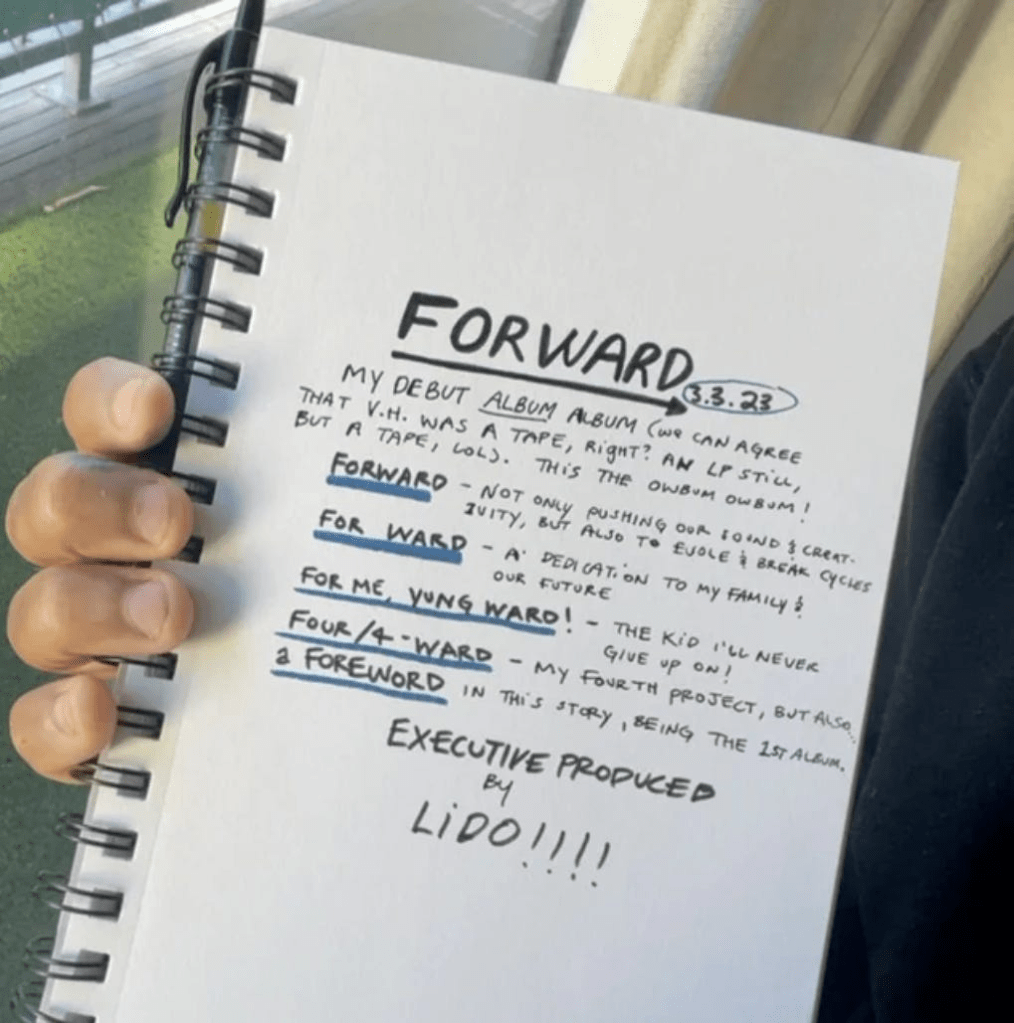 FORWARD
3.3.23
MY DEBUT ALBUM ALBUM (WE CAN AGREE
THAT V.H. WAS A TAPE, RIGHT? AN LP STILL,
BUT A TAPE, LOL). THIS THE OWBUM OWBUM!
FORWARD - NOT ONLY PUSHING OUR SOUND & CREAT-
IVITY, BUT ALSO TO EVOLE & BREAK CYCLES
FOR WARD - A DEDICATION TO MY FAMILY &
OUR FUTURE
FOR ME, YUNG WARD! - THE KID I'LL NEVER
GIVE UP ON!
FOUR/4-WARD - MY FOURTH PROJECT, BUT ALSO...
a FOREWORD IN THIS STORY, BEING THE 1ST ALBUM.
EXECUTIVE PRODUCED
BY
LIDO!!!!